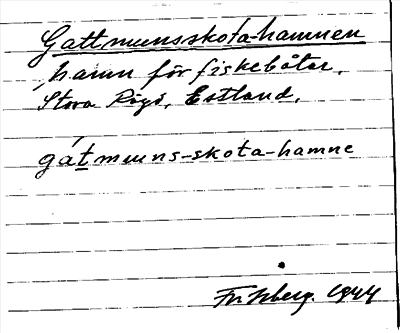 Gattmunsskota-hamnen
hamn för fiskebåtar.
Stora Rågö, Estland.
gátmuns-skota-hamne
Fritzberg. 1944